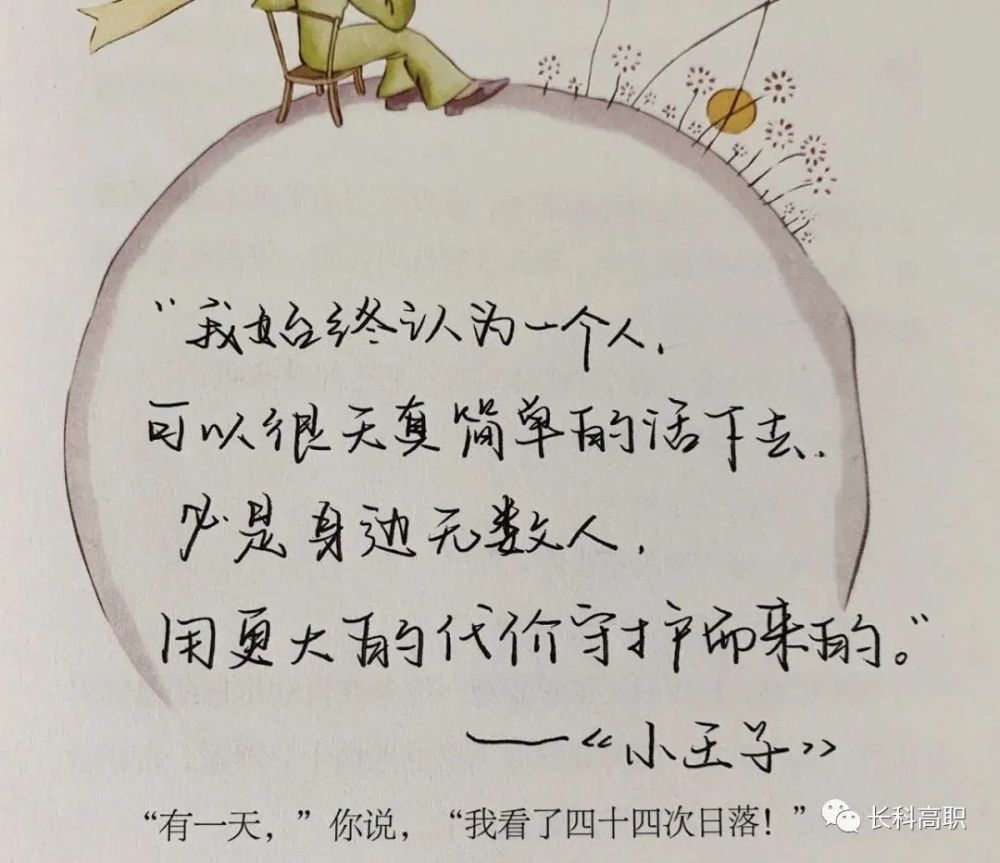 “我始终认为一个人，
可以很天真简单的活下去．
必是身边无数人，
用更大的代价守护而来的。”
——《小王子》
“有一天，”你说，“我看了四十四次日落！”
长科高职